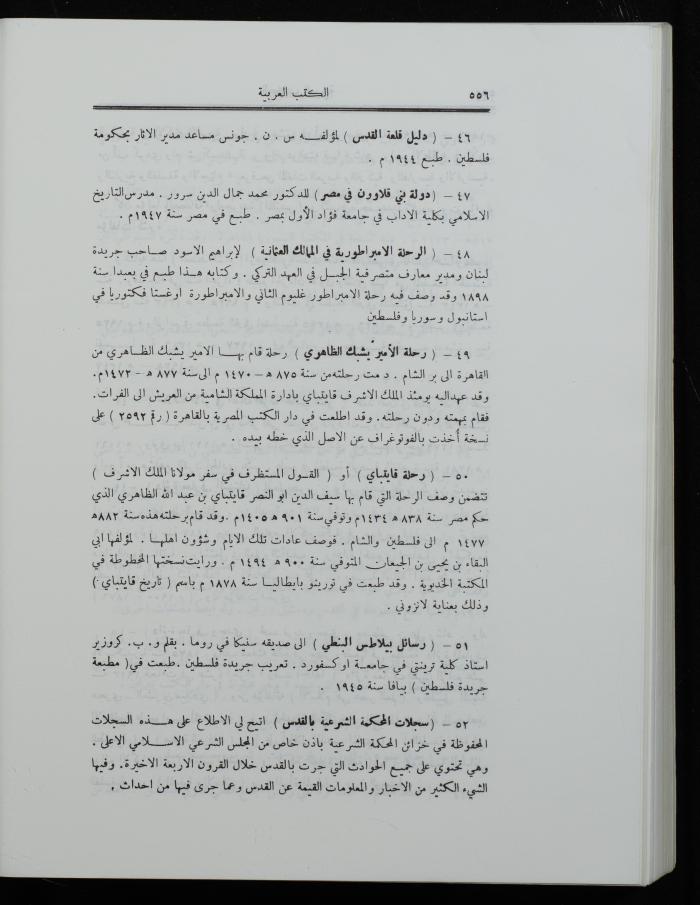 ٥٥٦
الكتب العربية
٤٦ – ( دليل قلعة القدس ) لمؤلفه س . ن . جونس مساعد مدير الاثار بحكومة
فلسطين . طبع ١٩٤٤ م .
٤٧ – ( دولة بني قلاوون في مصر ) للدكتور محمد جمال الدين سرور . مدرس التاريخ
الاسلامي بكلية الاداب في جامعة فؤاد الأول بمصر . طبع في مصر سنة ١٩٤٧م .
٤٨ – ( الرحلة الامبراطورية في الممالك العثمانية ) لإبراهيم الاسود صاحب جريدة
لبنان ومدير معارف متصرفية الجبل في العهد التركي . وكتابه هذا طبع في بعبدا سنة
١٨٩٨ وقد وصف فيه رحلة الامبراطور غليوم الثاني والامبراطورة اوغستا فكتوريا في
استانبول وسوريا وفلسطين
٤٩ – ( رحلة الأمير يشبك الظاهري ) رحلة قام بها الامير يشبك الظاهري من
القاهرة الى بر الشام . دمت رحلته من سنة ٨٧٥ ه – ١٤٧٠ م الى سنة ٨٧٧ ه – ١٤٧٢م.
وقد عهد اليه يومئذ الملك الاشرف قايتباي بادارة المملكة الشامية من العريش الى الفرات.
فقام بمهمته ودون رحلته . وقد اطلعت في دار الكتب المصرية بالقاهرة ( رقم ٢٥٩٢ ) على
نسخة أخذت بالفوتوغراف عن الاصل الذي خطه بيده .
٥٠ – ( رحلة قايتباي ) أو ( القول المستظرف في سفر مولانا الملك الاشرف )
تتضمن وصف الرحلة التي قام بها سيف الدين ابو النصر قايتباي بن عبد الله الظاهري الذي
حكم مصر سنة ٨٣٨ ه ١٤٣٤م وتوفي سنة ٩٠١ ه ١٤٠٥م . وقد قام برحلته هذه سنة ٨٨٢ه
١٤٧٧ م الى فلسطين والشام . فوصف عادات تلك الايام وشؤون اهلها . لمؤلفها ابي
البقاء بن يحيى بن الجيعان المتوفي سنة ٩٠٠ ه ١٤٩٤ م . ورايت نسختها المخطوطة في
المكتبة الخديوية . وقد طبعت في تورينو بايطاليا سنة ١٨٧٨ م باسم ( تاريخ قايتباي )
وذلك بعناية لانزوني .
٥١ – ( رسائل بيلاطس البنطي ) الى صديقه سنيكا في روما . بقلم و. ب. كروزير
استاذ كلية ترينتي في جامعة اوكسفورد . تعريب جريدة فلسطين . طبعت في ( مطبعة
جريدة فلسطين ) بيافا سنة ١٩٤٥ .
٥٢ – ( سجلات المحكمة الشرعية بالقدس ) اتيح لي الاطلاع على هذه السجلات
المحفوظة في خزائن المحكمة الشرعية باذن خاص من المجلس الشرعي الاسلامي الاعلى .
وهي تحتوي على جميع الحوادث التي جرت بالقدس خلال القرون الاربعة الاخيرة. وفيها
الشيء الكثير من الاخبار والمعلومات القيمة عن القدس وعما جرى فيها من احداث .